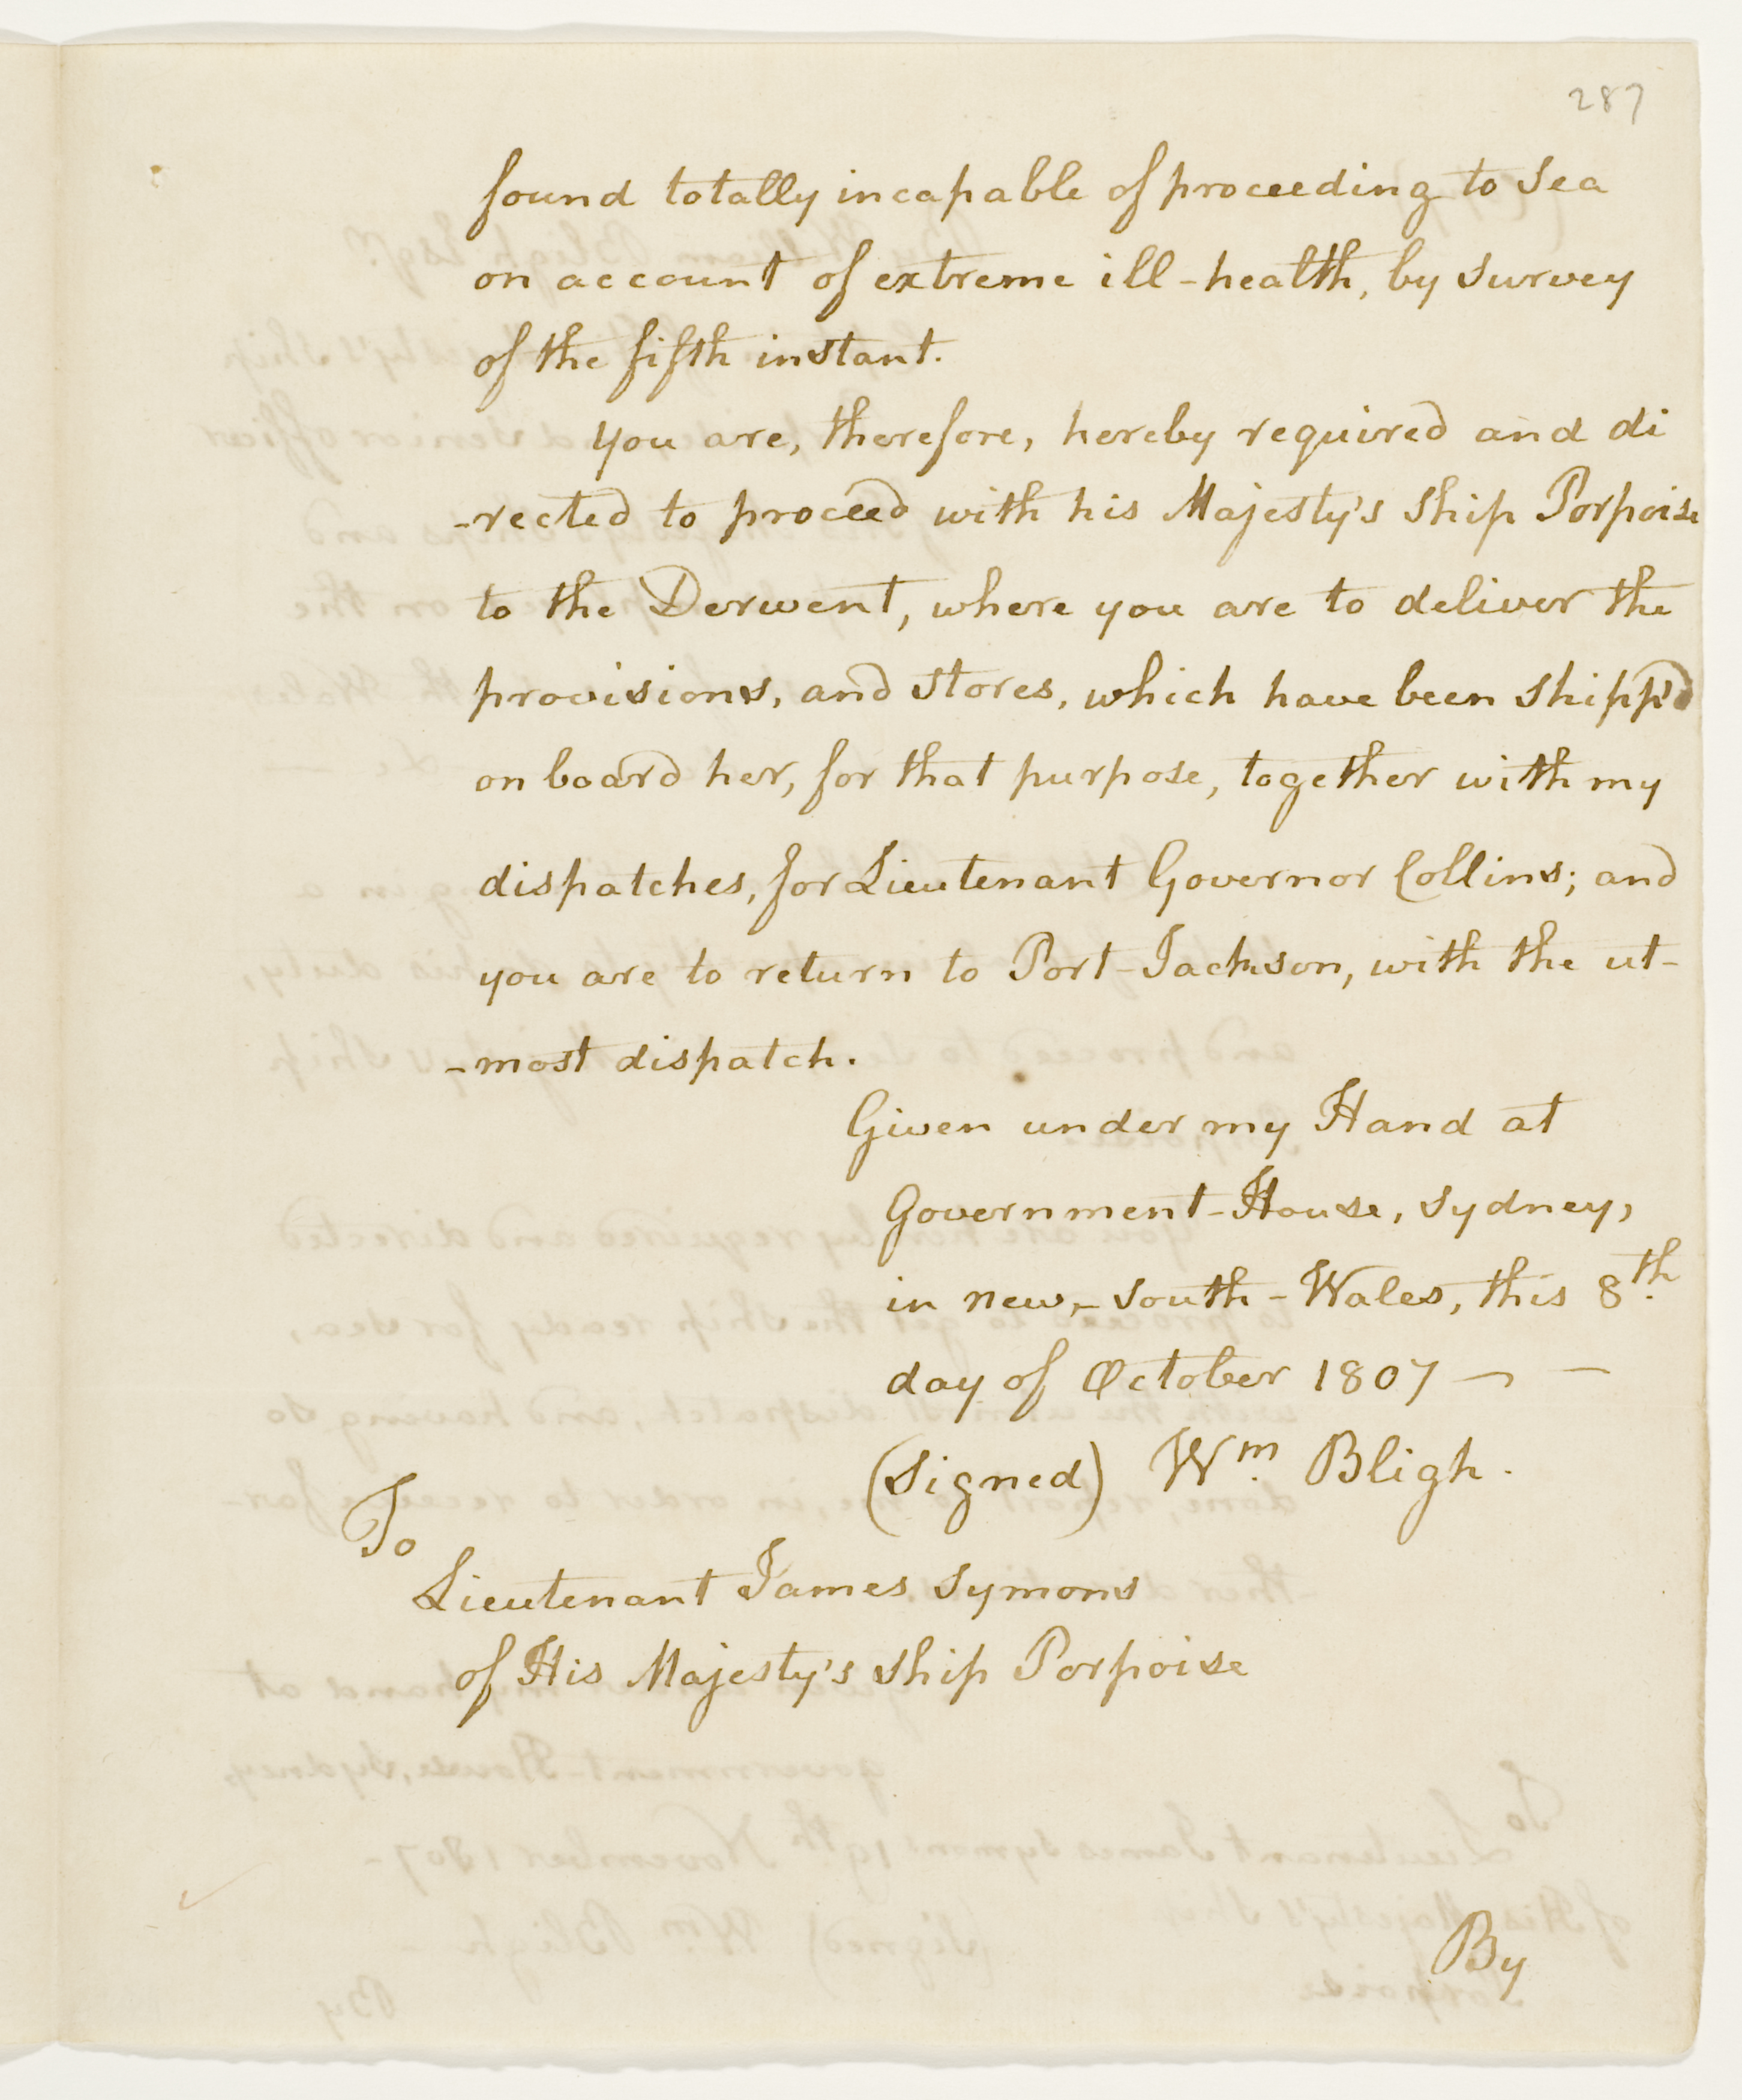 287
found totally incapable of proceeding to sea
on account of extreme ill-health, by survey
of the fifth instant.
You are, therefore, hereby required and di
-rected to proceed with his Majesty's Ship Porpoise
to the Derwent, where you are to deliver the
provisions, and stores, which have been shipp'd
on board her, for that purpose, together with my
dispatches, for Lieutenant Governor Collins; and
you are to return to Port-Jackson, with the ut-
-most dispatch.
Given under my Hand at
Government-House, Sydney,
in new-South-Wales, this 8th.
day of October 1807 - -
(Signed) Wm. Bligh.
To
Lieutenant James Symons
of His Majesty's Ship Porpoise
By